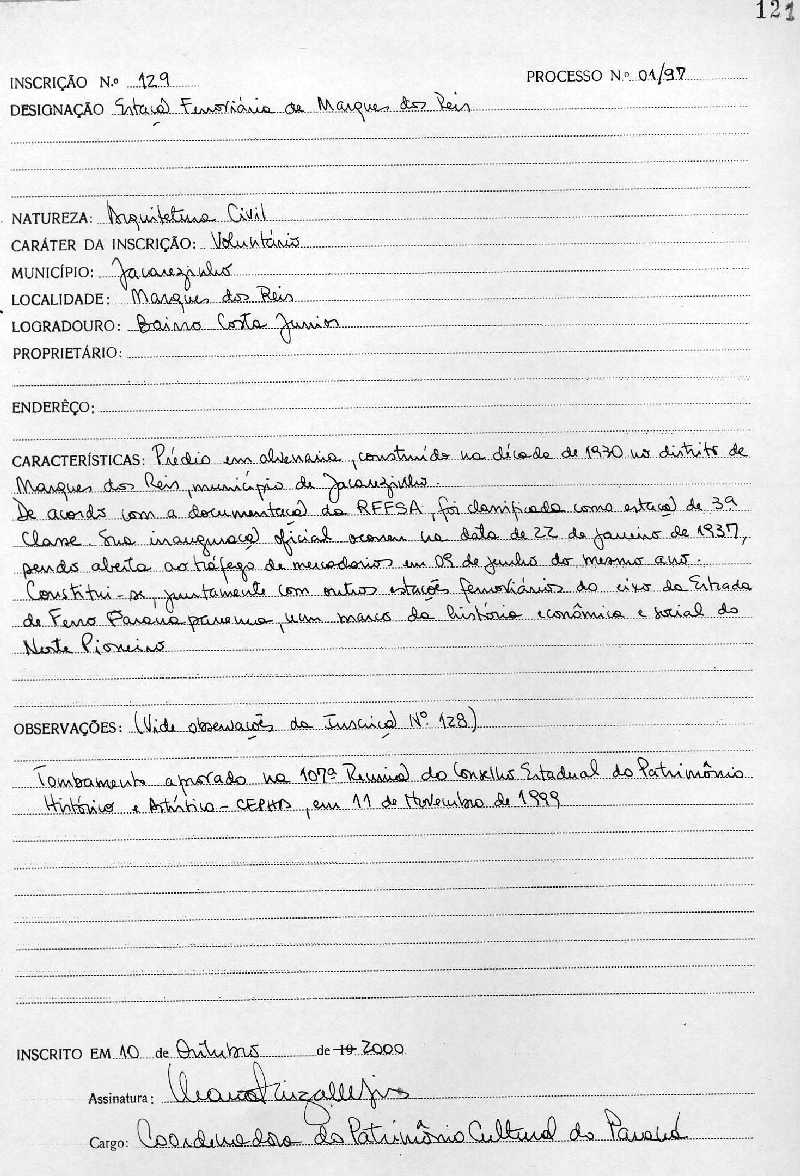 121
INSCRIÇÃO N.º 129 PROCESSO N.º 01/97
DESIGNAÇÃO Estação Ferroviária de Marques dos Reis
NATUREZA: Arquitetura Civil
CARÁTER DA INSCRIÇÃO: Voluntário
MUNICÍPIO: Jacarezinho
LOCALIDADE: Marques dos Reis
LOGRADOURO: Bairro Costa Junior
PROPRIETÁRIO:
ENDERÊÇO:
CARACTERÍSTICAS: Prédio em alvenaria, construído na década de 1930 no distrito de
Marques dos Reis, município de Jacarezinho.
De acordo com a documentação da RFFSA, foi classificada como estação de 3ª
Classe. Sua inauguração oficial ocorreu na data de 22 de janeiro de 1937,
sendo aberta ao tráfego de mercadorias em 09 de junho do mesmo ano.
Constitui-se, juntamente com outras estações ferroviárias do eixo da Estrada
de Ferro Paranapanema, num marco da história econômica e social do
Norte Pioneiro
OBSERVAÇÕES: (Vide observações da Inscrição Nº 128)
Tombamento aprovado na 107ª Reunião do Conselho Estadual do Patrimônio
Histórico e Artístico - CEPHA, em 11 de Novembro de 1999
INSCRITO EM 10 de Outubro de 19 2000
Assinatura:
Cargo: Coordenadora do Patrimônio Cultural do Paraná